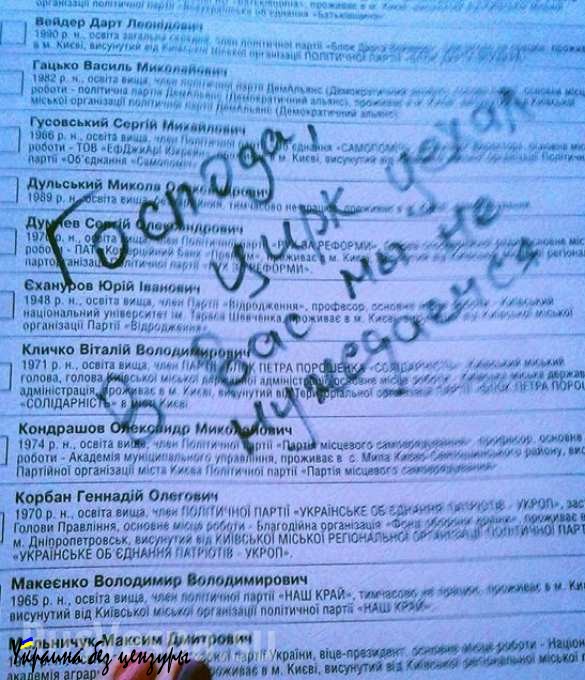 Вейдер Дарт Леонідович
1990 р. н., освіта загальна середня, член політичної партії «Блок Дарта
в м. Києві, висунутий від Київської міської організації ПОЛІТИЧНОЇ ПАРТІЇ
Гацько Василь Миколайович
1982 р. н., освіта вища, член політичної партії ДемАльянс (Демократичний альянс),
роботи - політична партія ДемАльянс (Демократичний альянс), проживає в м.
міської організації політичної партії ДемАльянс (Демократичний альянс)
Гусовський Сергій Михайлович
1966 р. н., освіта вища, член Політичної партії «Об'єднання «САМОПОМІЧ»,
роботи - ТОВ «ЕфДжиАрі проживає в м. Києві, висунутий від
партії «Об'єднання «Самопоміч»
Дульський Микола
1989 тимчасово не працює, проживає в
Думчев Сергій Олександрович
РЕФОРМИ»,
роботи - ПАТ Комерційний Банк проживає в м. Києві, висунутий від
партії РЕФОРМИ».
Єхануров Юрій Іванович
1948 р. н., освіта вища, член Партії «Відродження», професор, основне місце роботи - Київський
національний університет ім. Тараса Шевченка, проживає в м. Києві, висунутий від Київської міської
організації Партії «Відродження».
Кличко Віталій Володимирович
1971 р. н., освіта вища, член ПАРТІЇ «БЛОК ПЕТРА ПОРОШЕНКА «СОЛІДАРНІСТЬ», Київський міський
голова, голова Київської міської державної адміністрації, основне місце роботи - Київська міська держав
адміністрація, проживає в м. Києві, висунутий від Територіальної організації «БЛОК ПЕТРА ПОРОШ
«СОЛІДАРНІСТЬ» в місті Києві
Кондрашов Олександр Миколайович
1974 р. н., освіта вища, член Політичної партії «Партія місцевого самоврядування», професор, основне
роботи - Академія муніципального управління, проживає в с. Мила Києво-Святошинського району, вис
Партійної організації міста Києва Політичної партії «Партія місцевого самоврядування»
Корбан Геннадій Олегович
1970 р. н., освіта вища, член ПОЛІТИЧНОЇ ПАРТІЇ «УКРАЇНСЬКЕ ОБ'ЄДНАННЯ ПАТРІОТІВ - УКРОП», зас
Голови Правління, основне місце роботи - Благодійна організація «Фонд оборони країни», проживає в
м. Дніпропетровськ, висунутий від КИЇВСЬКОЇ МІСЬКОЇ РЕГІОНАЛЬНОЇ ОРГАНІЗАЦІЇ ПОЛІТИЧНОЇ ПАРТ
«УКРАЇНСЬКЕ ОБ'ЄДНАННЯ ПАТРІОТІВ - УКРОП».
Макеєнко Володимир Володимирович
1965 р. н., освіта вища, член політичної партії «НАШ КРАЙ», тимчасово не працює, проживає в м. Ки
висунутий від Київської міської організації політичної партії «НАШ КРАЙ»
Мельничук Максим Дмитрович
партії України, віце-президент, основне місце роботи - Націон
академія аграр проживає в м. Києві, висунутий від Київської регіональної міської п
Господа,
цирк уехал
В вас мы не
нуждаемся
Украина без цензуры